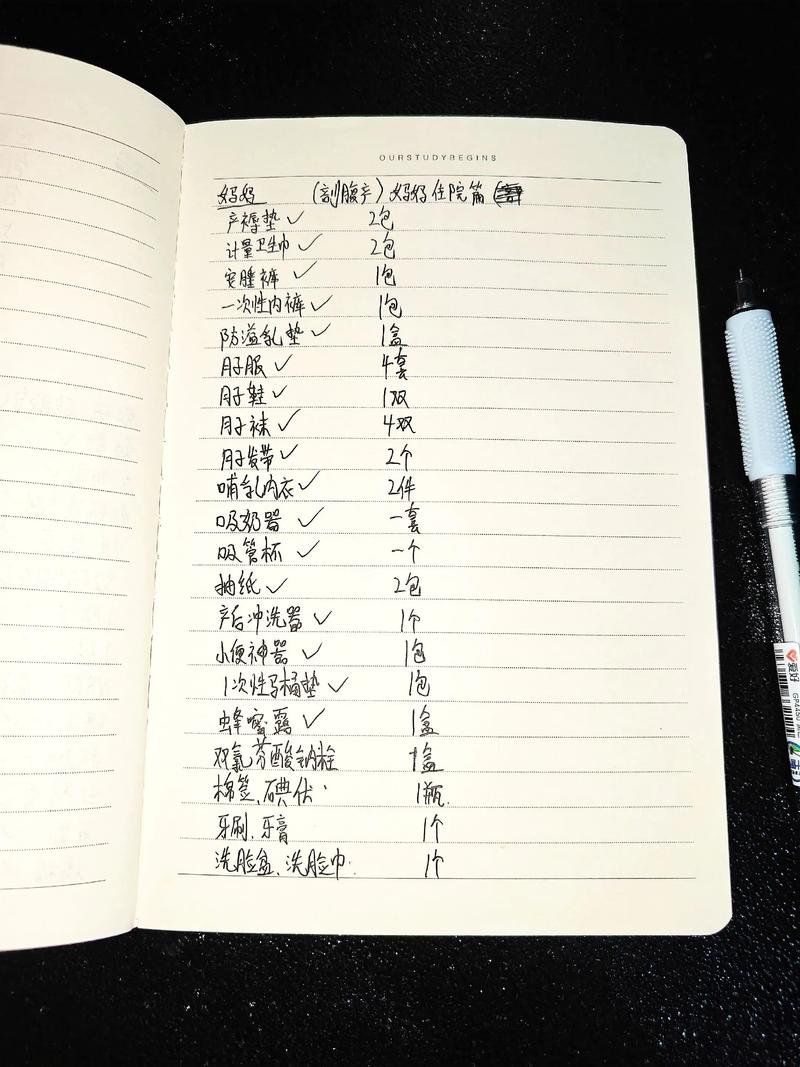 OURSTUDYBEGINS
妈妈 (剖腹产) 妈妈住院篇
产褥垫 ✓ 2包
计量卫生巾 ✓ 2包
安睡裤 ✓ 1包
一次性内裤 ✓ 1包
防溢乳垫 ✓ 1盒
月子服 ✓ 4套
月子鞋 ✓ 1双
月子袜 ✓ 4双
月子发带 ✓ 2个
哺乳内衣 ✓ 2件
吸奶器 ✓ 一套
吸管杯 ✓ 一个
抽纸 ✓ 2包
产后冲洗器 ✓ 1个
小便神器 ✓ 1包
1次性马桶垫 ✓ 1包
蜂蜜露 ✓ 1盒
双氯芬酸钠栓 1盒
棉签、碘伏 1瓶.
牙刷、牙膏 1个
洗脸盆、洗脸巾 1个
爱好